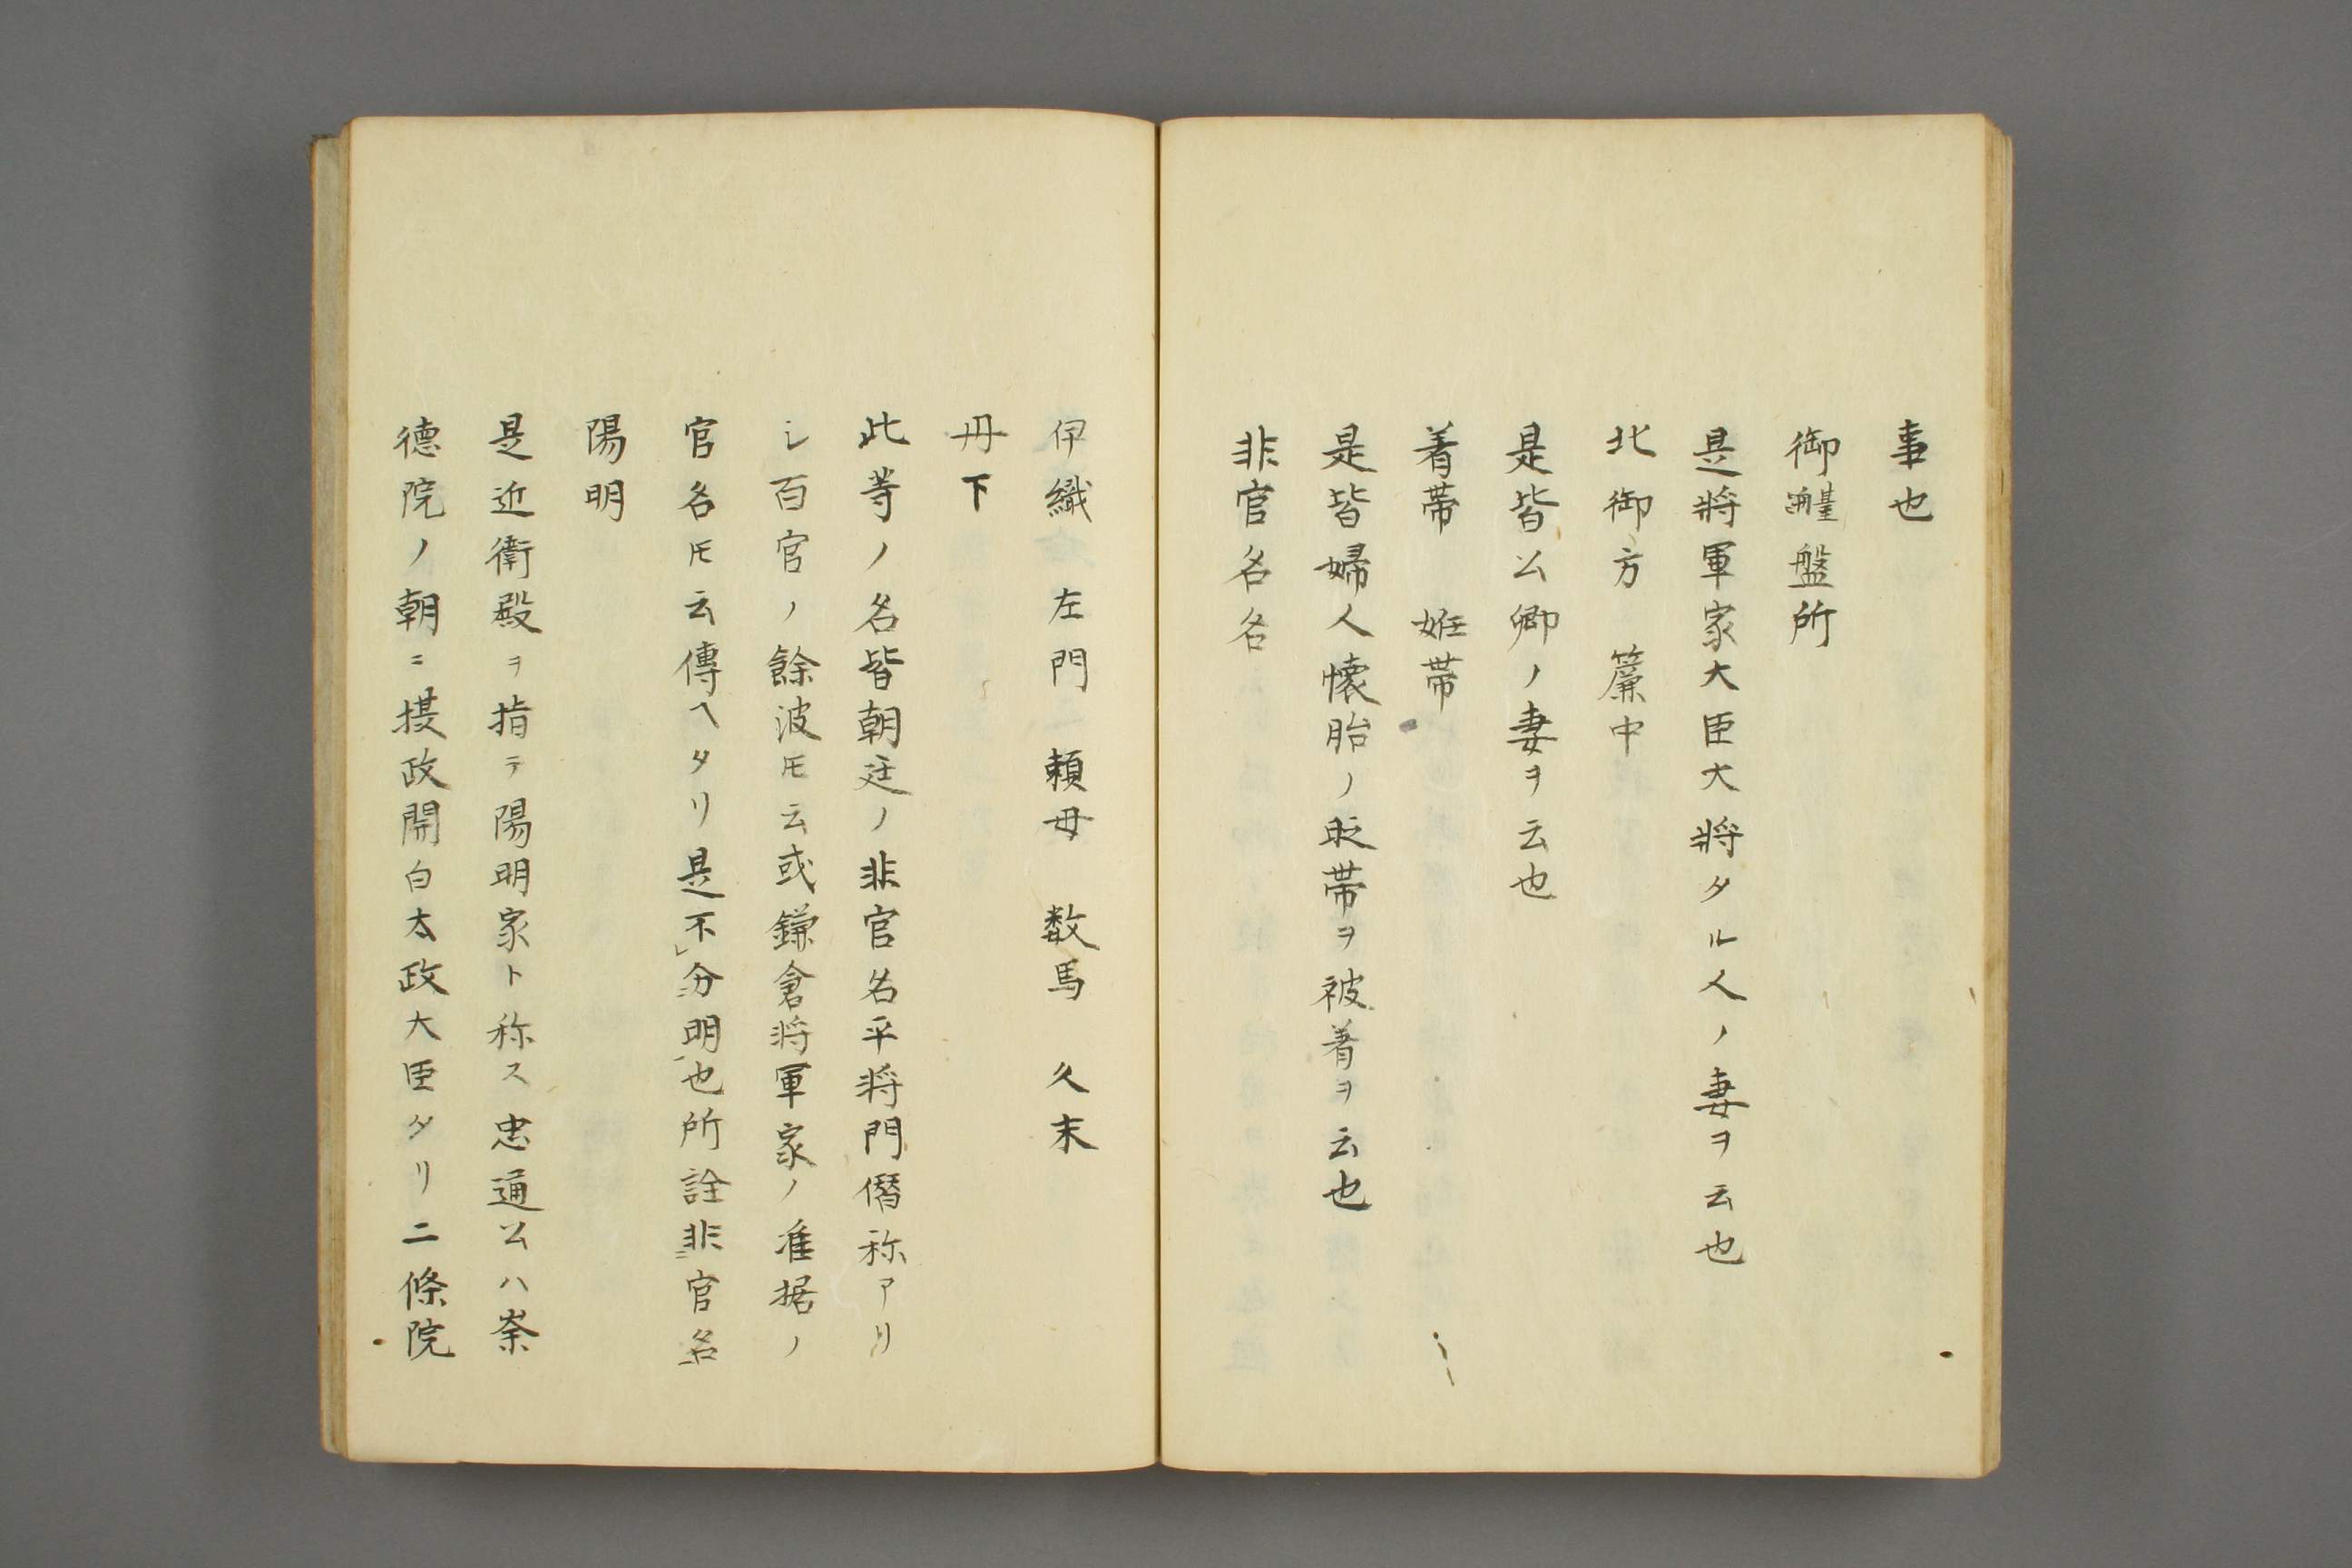 事也
御䑓盤所
是將軍家大臣大將タル人ノ妻ヲ云也
北御方　簾中
是皆公卿ノ妻ヲ云也
着帯　姙帯
是皆婦人懐胎ノ時帯ヲ被着ヲ云也
非官名名
伊織　左門　頼母　数馬　久末
丹下
此等ノ名皆朝廷ノ非官名平将門僭称アリ
シ百官ノ餘波モ云或鎌倉将軍家ノ准据ノ
官名モ云傳ヘタリ是不レ分二明一也所詮非二官名一
陽明
是近衛殿ヲ指テ陽明家ト称ス忠通公ハ崇
徳院ノ朝ニ摂政関白太政大臣タリ二條院